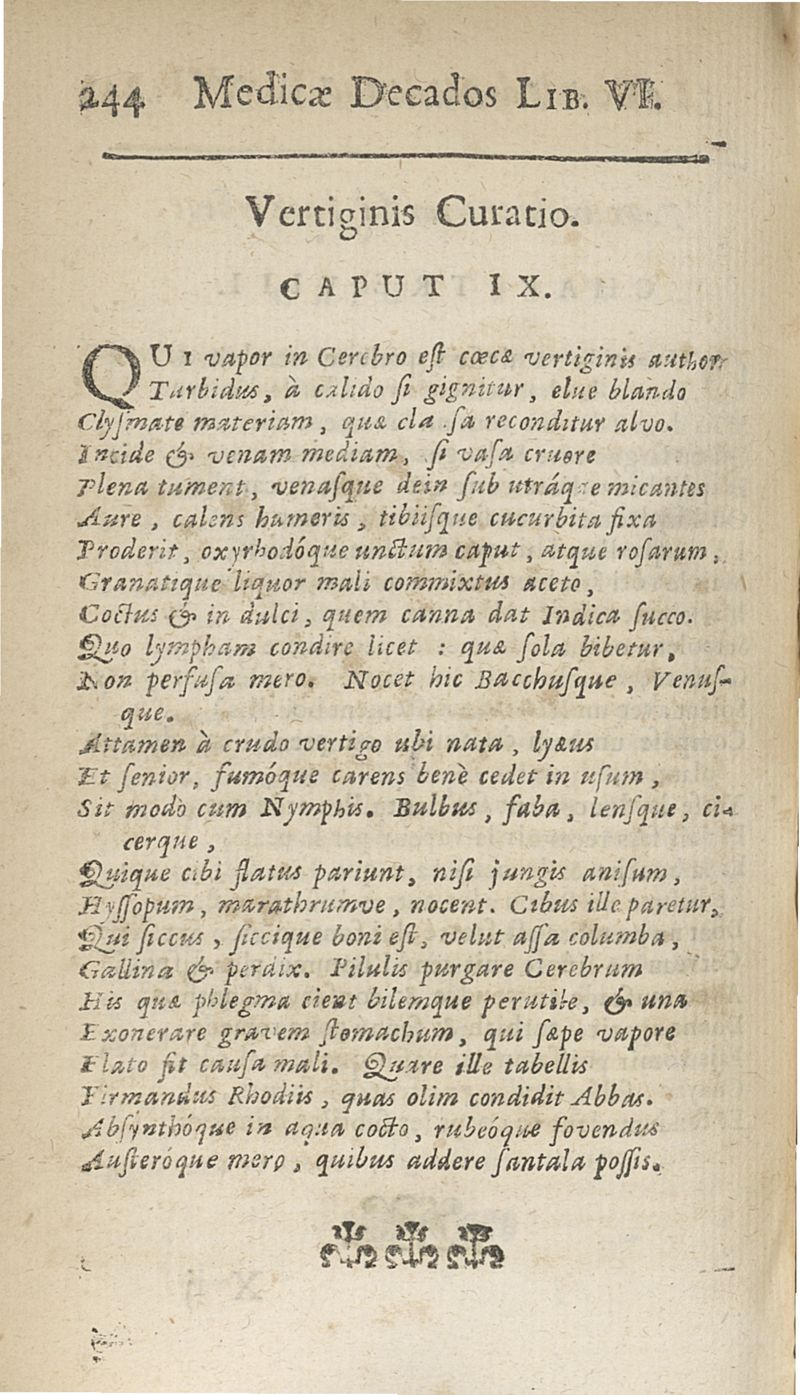 244 Medicæ Decados LIB. VI.
Vertiginis Curatio.
CAPUT IX.
QUI vapor in Cerebro est cœcæ vertiginis author
Turbidus, à calido si gignitur, elue blando
Clysmate materiam, quæ clausa reconditur alvo.
Incide & venam mediam, si vasa cruore
Plena tument, venasque dein sub utráque micantes
Aure, calens humeris, tibiisque cucurbita fixa
Proderit, oxyrhodóque unctum caput, atque rosarum,
Granatique liquor mali commixtus aceto,
Coctus & in dulci, quem canna dat Indica succo.
Quo lympham condire licet : quæ sola bibetur,
Non perfusa mero. Nocet hic Bacchusque, Venus-
que.
Attamen à crudo vertigo ubi nata, lyæus
Et senior, fumóque carens benè cedet in usum,
Sit modò cum Nymphis. Bulbus, faba, lensque, ci-
cerque,
Quique cibi flatus pariunt, nisi jungis anisum,
Hyssopum, marathrumve, nocent. Cibus ille paretur,
Qui siccus, siccique boni est, velut assa columba,
Gallina & perdix. Pilulis purgare Cerebrum
His quæ phlegma cient bilemque perutile, & una
Exonerare gravem stomachum, qui sæpe vapore
Elato fit causa mali. Quare ille tabellis
Firmandus Rhodiis, quas olim condidit Abbas.
Absynthóque in aqua cocto, rubeóque fovendus
Austeróque mero, quibus addere santala possis.